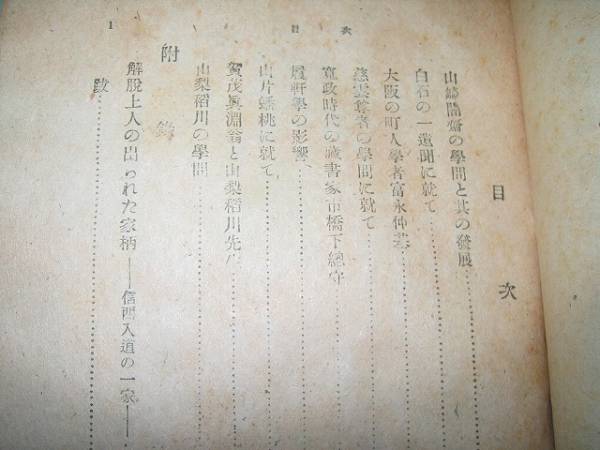 目次
山崎闇齋の學問と其の發展
白石の一遺聞に就て
大阪の町人學者富永仲基
慈雲尊者の學問に就て
寛政時代の藏書家市橋下總守
履軒學の影響
山片蟠桃に就て
賀茂眞淵翁と山梨稻川先生
山梨稻川の學問
附錄
解脱上人の出られた家柄——信西入道の一家——
跋
目次
1